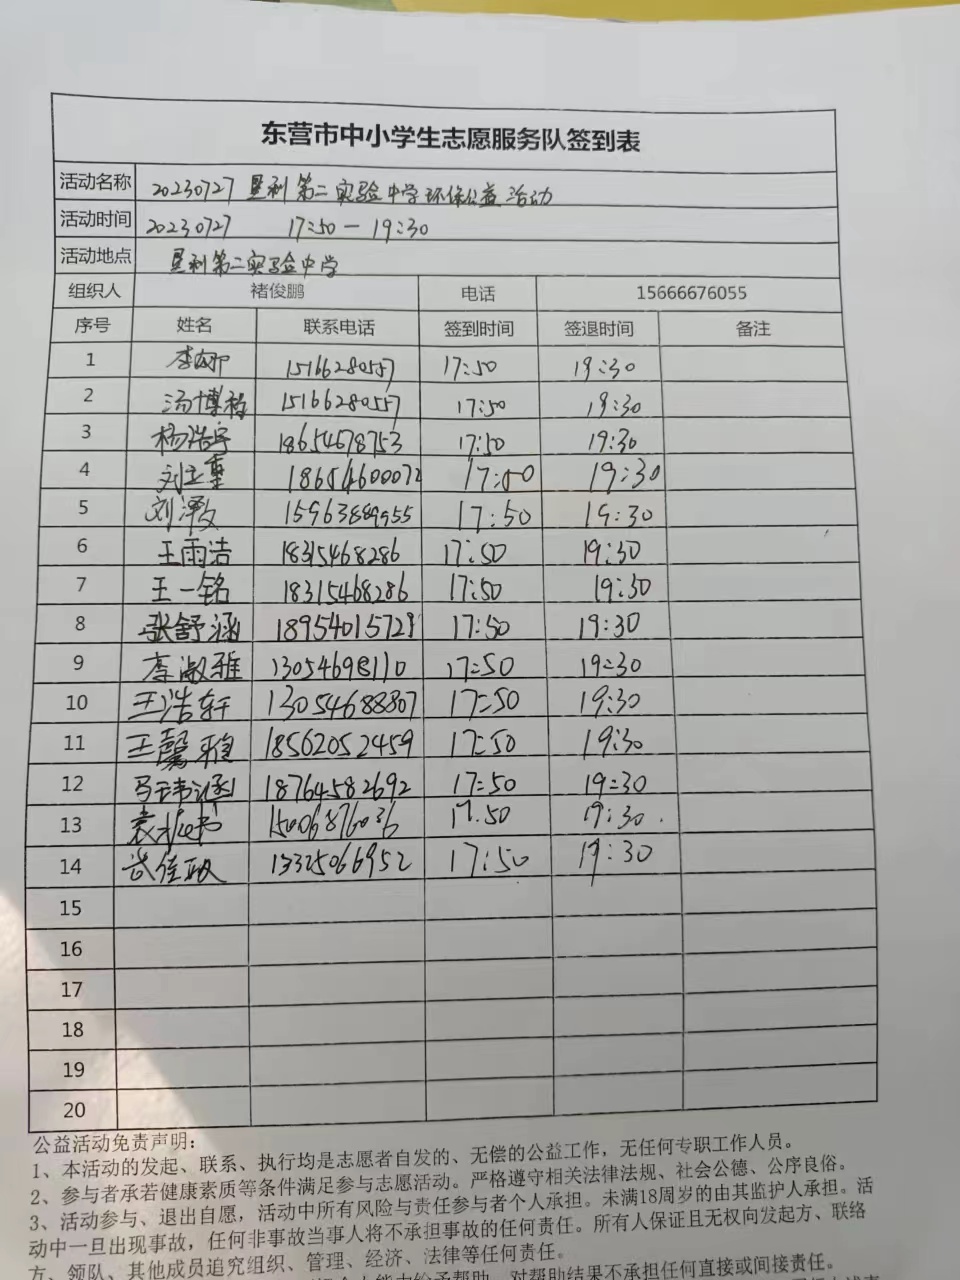 东营市中小学生志愿服务队签到表
活动名称 20230727 垦利第二实验中学环保公益活动
活动时间 20230727 17:50—19:30
活动地点 垦利第二实验中学
组织人 褚俊鹏 电话 15666676055
序号 姓名 联系电话 签到时间 签退时间 备注
1 李娜 15166280557 17:50 19:30
2 汤博 15166280557 17:50 19:30
3 杨浩宇 18654678753 17:50 19:30
4 刘 18654600072 17:50 19:30
5 刘泽 15963889955 17:50 19:30
6 王雨浩 18315468286 17:50 19:30
7 王一铭 18315468286 17:50 19:30
8 张舒涵 18954015729 17:50 19:30
9 李淑雅 13054698110 17:50 19:30
10 王浩轩 13054688807 17:50 19:30
11 王馨雅 18562052459 17:50 19:30
12 马玮涵 18764582692 17:50 19:30
13 袁 15006876036 17:50 19:30
14 武佳 13325066952 17:50 19:30
15
16
17
18
19
20
公益活动免责声明：
1、本活动的发起、联系、执行均是志愿者自发的、无偿的公益工作，无任何专职工作人员。
2、参与者承若健康素质等条件满足参与志愿活动。严格遵守相关法律法规、社会公德、公序良俗。
3、活动参与、退出自愿，活动中所有风险与责任参与者个人承担。未满18周岁的由其监护人承担。活
动中一旦出现事故，任何非事故当事人将不承担事故的任何责任。所有人保证且无权向发起方、联络
方、领队、其他成员追究组织、管理、经济、法律等任何责任。
给予帮助，对帮助结果不承担任何直接或间接责任。